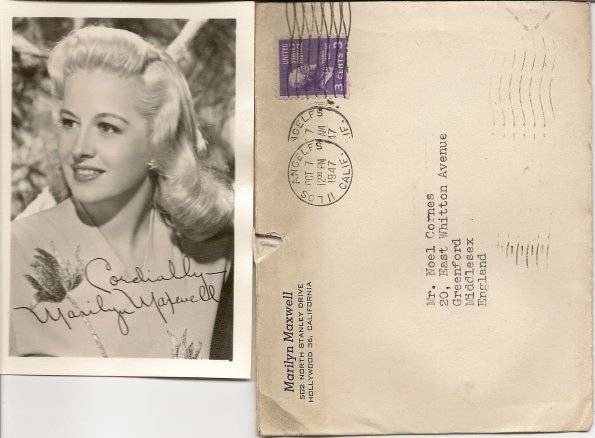 Cordially—
Marilyn Maxwell
UNITED
3 CENTS 3
ANGELES
CALIF.
OCT 7
AM
47
LOS ANGELES
CALIF.
OCT 7
12 PM
1947
11
Marilyn Maxwell
502 NORTH STANLEY DRIVE
HOLLYWOOD 36, CALIFORNIA
Mr. Noel Cornes
20, East Whitton Avenue
Greenford
Middlesex
England